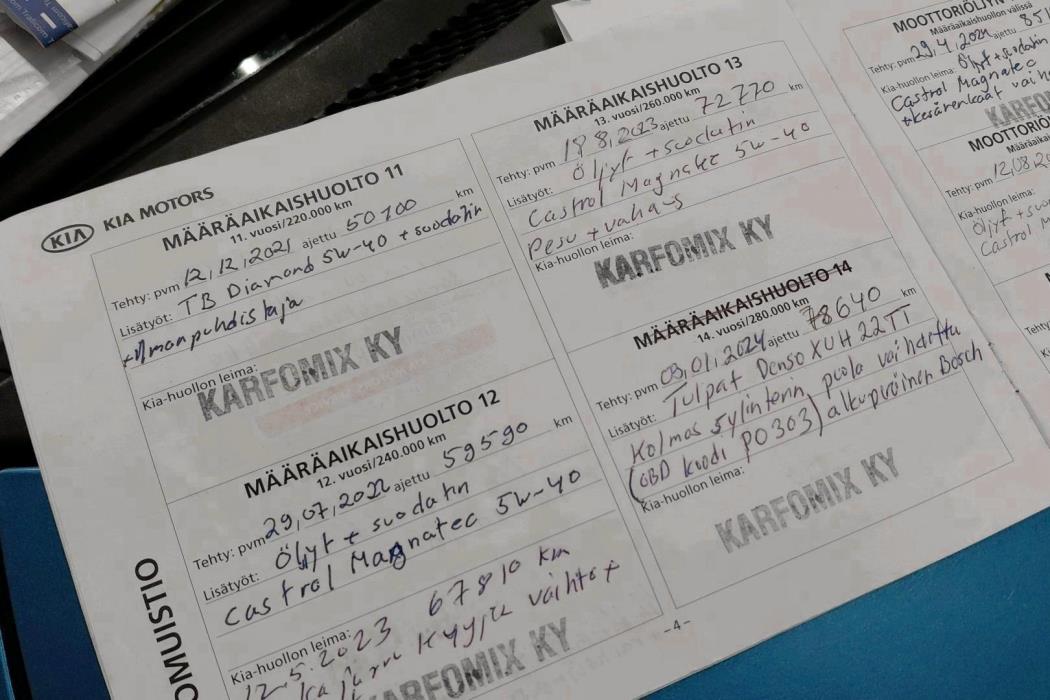 KIA KIA MOTORS
MÄÄRÄAIKAISHUOLTO 11
11. vuosi/220.000 km
Tehty: pvm 12,12,2021 ajettu 50100 km
Lisätyöt: TB Diamond 5W-40 + suodatin
+ilmanpuhdistaja
Kia-huollon leima:
KARFOMIX KY
MÄÄRÄAIKAISHUOLTO 12
12. vuosi/240.000 km
Tehty: pvm 29,07,2022 ajettu 59590 km
Lisätyöt: Öljyt + suodatin
Castrol Magnatec 5W-40
Kia-huollon leima:
12.5.2023 67810 km
vaihto +
KARFOMIX KY
OMUISTIO
MÄÄRÄAIKAISHUOLTO 13
13. vuosi/260.000 km
Tehty: pvm 18,8,2023 ajettu 72770 km
Lisätyöt: Öljyt + suodatin
Castrol Magnatec 5W-40
Pesu + vahaus
Kia-huollon leima:
KARFOMIX KY
MÄÄRÄAIKAISHUOLTO 14
14. vuosi/280.000 km
Tehty: pvm 03,01,2024 ajettu 78640 km
Lisätyöt: Tulpat Denso XUH22TT
Kolmas sylinterin puola vaihdettu
(OBD koodi P0303) alkuperäinen Bosch
Kia-huollon leima:
KARFOMIX KY
-4-
MOOTTORIÖLJYN
Määräaikaishuollon välissä
Tehty: pvm 29,4,2024 ajettu 851
Kia-huollon leima: Öljyt + suodatin
Castrol Magnatec
+kesärenkaat vaih
KARFOMI
MOOTTORIÖL
Määräaika
Tehty: pvm 12,08,20
Kia-huollon leima:
Öljyt + suo
Castrol M
Tehty
Kia-